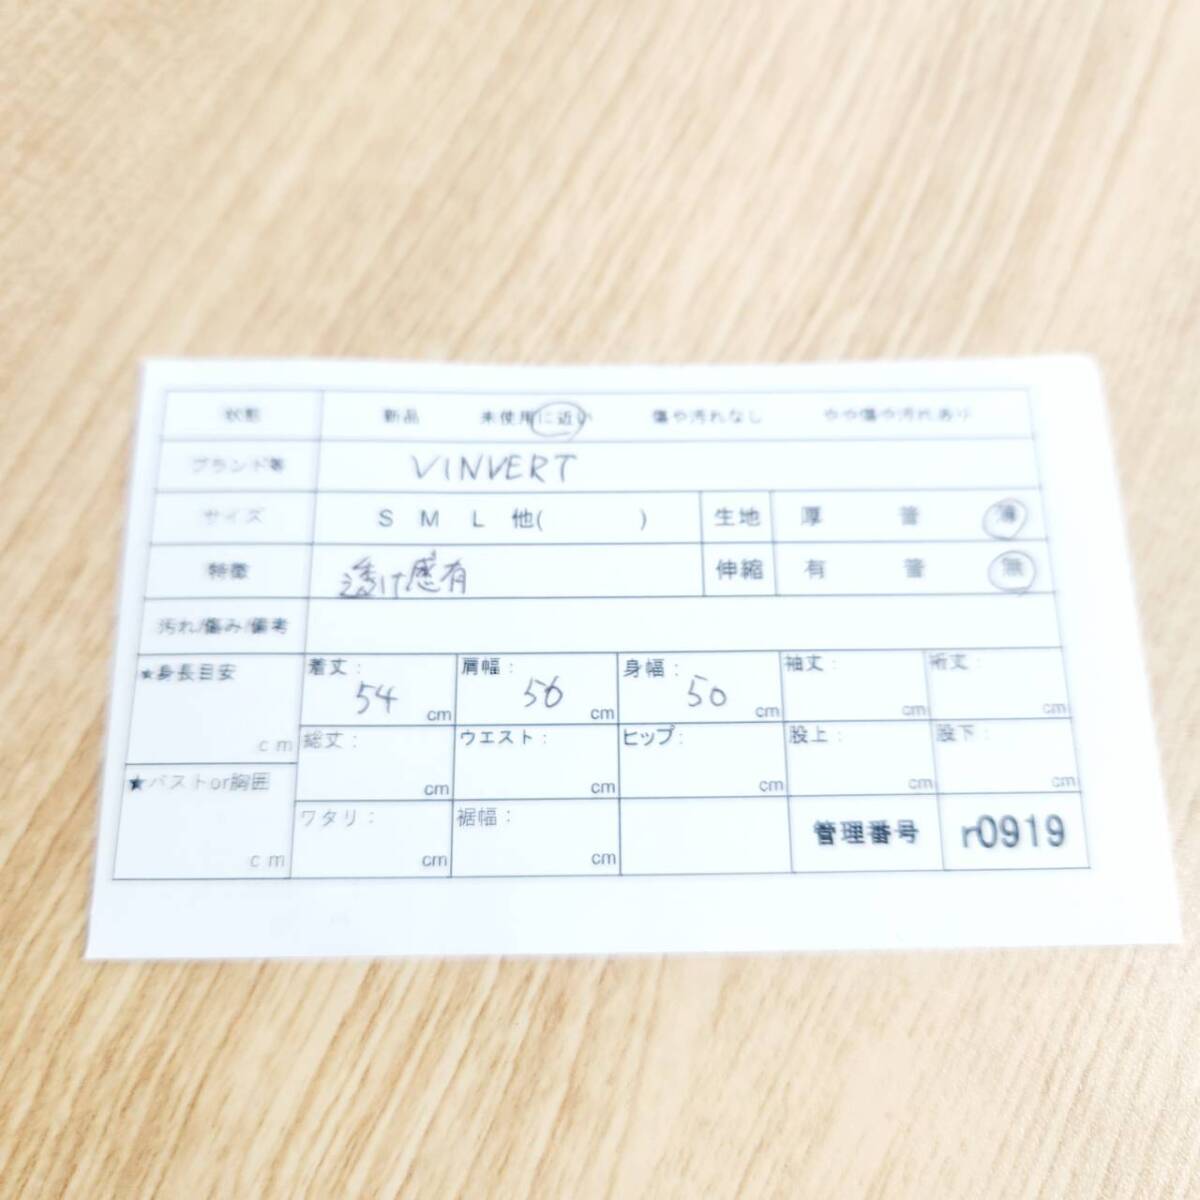 状態 新品 未使用に近い 傷や汚れなし やや傷や汚れあり
ブランド等 VINVERT
サイズ S M L 他( ) 生地 厚 普 薄
特徴 透け感有 伸縮 有 普 無
汚れ/傷み/備考
★身長目安 cm 着丈: 54 cm 肩幅: 56 cm 身幅: 50 cm 袖丈: cm 裄丈: cm
総丈: cm ウエスト: cm ヒップ: cm 股上: cm 股下: cm
★バストor胸囲 cm ワタリ: cm 裾幅: cm 管理番号 r0919